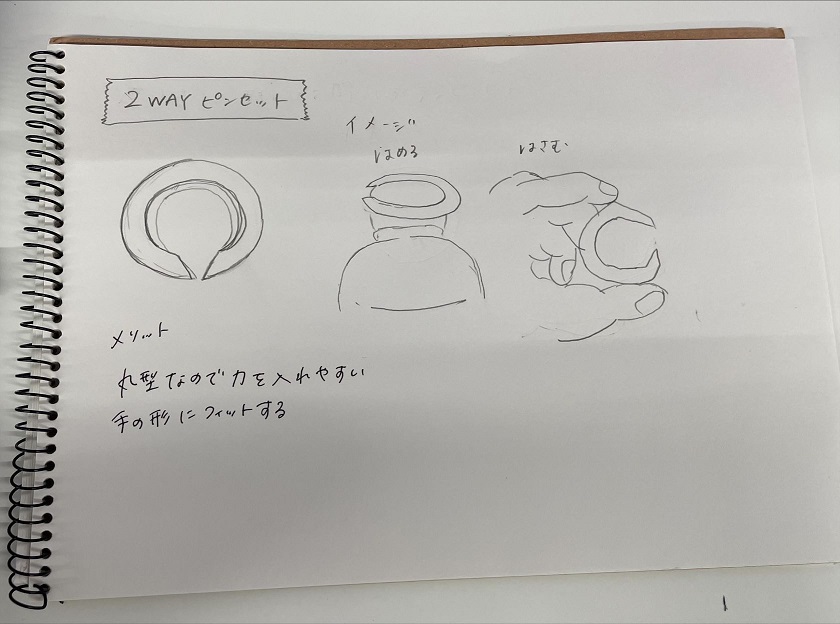 2 WAY ピンセット
イメージ
はめる
はさむ
メリット
丸型なので力を入れやすい
手の形にフィットする